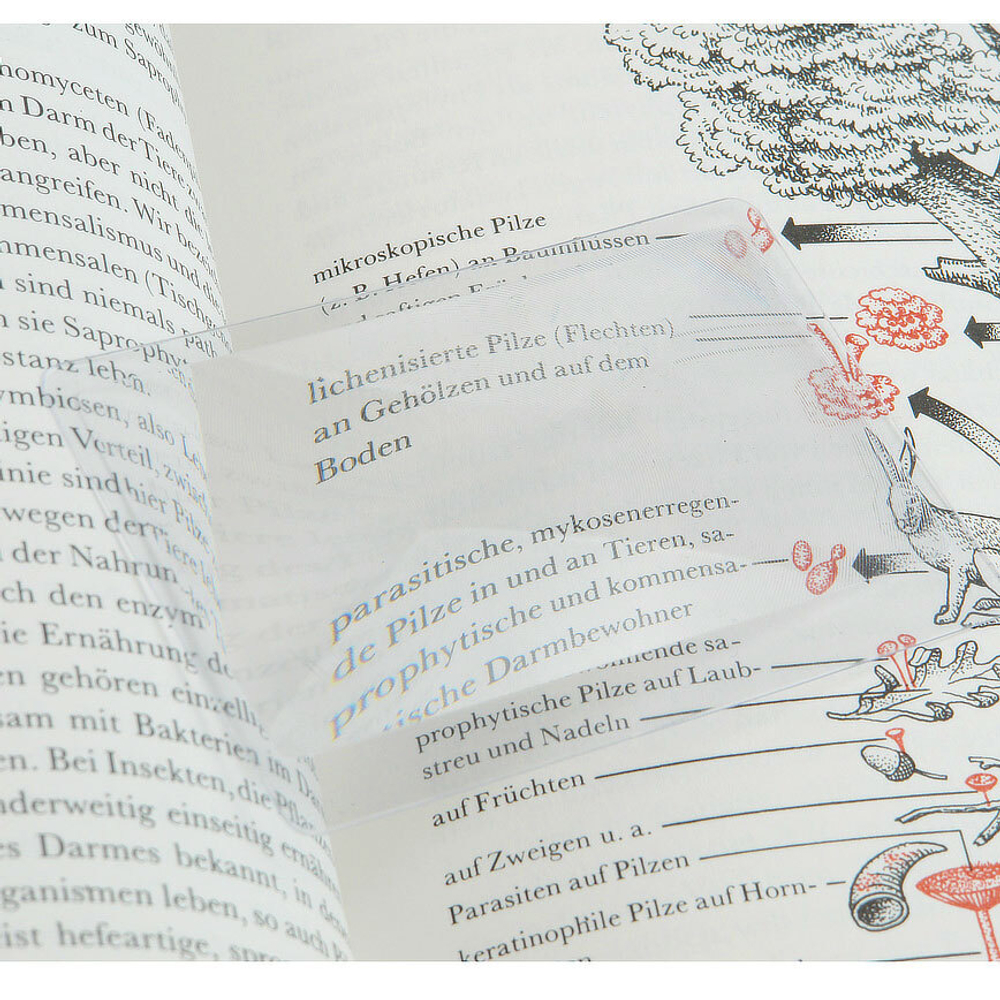 gewöh
zum Saprop
nomyceten (Faden
m Darm der Tiere
ben, aber nicht die
angreifen. Wir bezei
mensalismus und die
mmensalen (Tischg
n sind niemals path
n sie Saprophyt
stanz leben.
ymbiosen, also Le
tigen Vorteil, zwisch
inie sind hier Pilze
wegen der
n der Nahrun
ch den enzym
ie Ernährung de
en gehören einzell
sam mit Bakterien im Da
en. Bei Insekten, die Pflan
nderweitig einseitig ernäh
es Darmes bekannt, in de
ganismen leben, so auch
ist hefeartige, spro
mikroskopische Pilze
(z. B. Hefen) an Baumflüssen
lichenisierte Pilze (Flechten)
an Gehölzen und auf dem
Boden
parasitische, mykosenerregen-
de Pilze in und an Tieren, sa-
prophytische und kommensa-
ische Darmbewohner
nende sa-
prophytische Pilze auf Laub-
streu und Nadeln
auf Früchten
auf Zweigen u. a.
Parasiten auf Pilzen
keratinophile Pilze auf Horn-